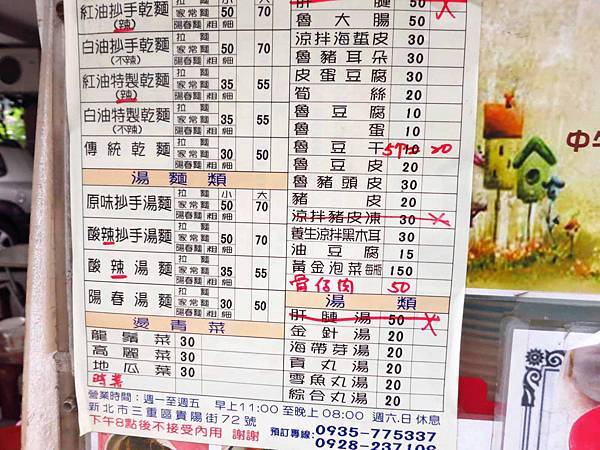 紅油抄手乾麵 (辣) 拉麵 家常麵 陽春麵 粗 細 50 70
白油抄手乾麵 (不辣) 拉麵 家常麵 陽春麵 粗 細 50 70
紅油特製乾麵 (辣) 拉麵 家常麵 陽春麵 粗 細 35 55
白油特製乾麵 (不辣) 拉麵 家常麵 陽春麵 粗 細 35 55
傳統乾麵 拉麵 家常麵 陽春麵 粗 細 30 50
湯麵類 小 大
原味抄手湯麵 拉麵 家常麵 陽春麵 粗 細 50 70
酸辣抄手湯麵 拉麵 家常麵 陽春麵 粗 細 50 70
酸辣湯麵 拉麵 家常麵 陽春麵 粗 細 35 55
陽春湯麵 拉麵 家常麵 陽春麵 粗 細 30 50
燙青菜
龍鬚菜 30
高麗菜 30
地瓜葉 30
時蔬
肝腱 50 X
魯大腸 50
涼拌海蜇皮 30
魯豬耳朵 30
皮蛋豆腐 30
筍絲 20
魯豆腐 10
魯蛋 10
魯豆干 20
魯豆皮 20
魯豬頭皮 30
豬皮 20
涼拌豬皮凍 30 X
養生涼拌黑木耳 30
油豆腐 15
黃金泡菜 150
骨佰肉 50
湯類
肝腱湯 50 X
金針湯 20
海帶芽湯 20
貢丸湯 20
鱈魚丸湯 20
綜合丸湯 20
營業時間：週一至週五 早上11:00至晚上08:00 週六.日休息
新北市三重區貴陽街72號
下午8點後不接受內用 謝謝 預訂專線: 0935-775337
0928-237108
中